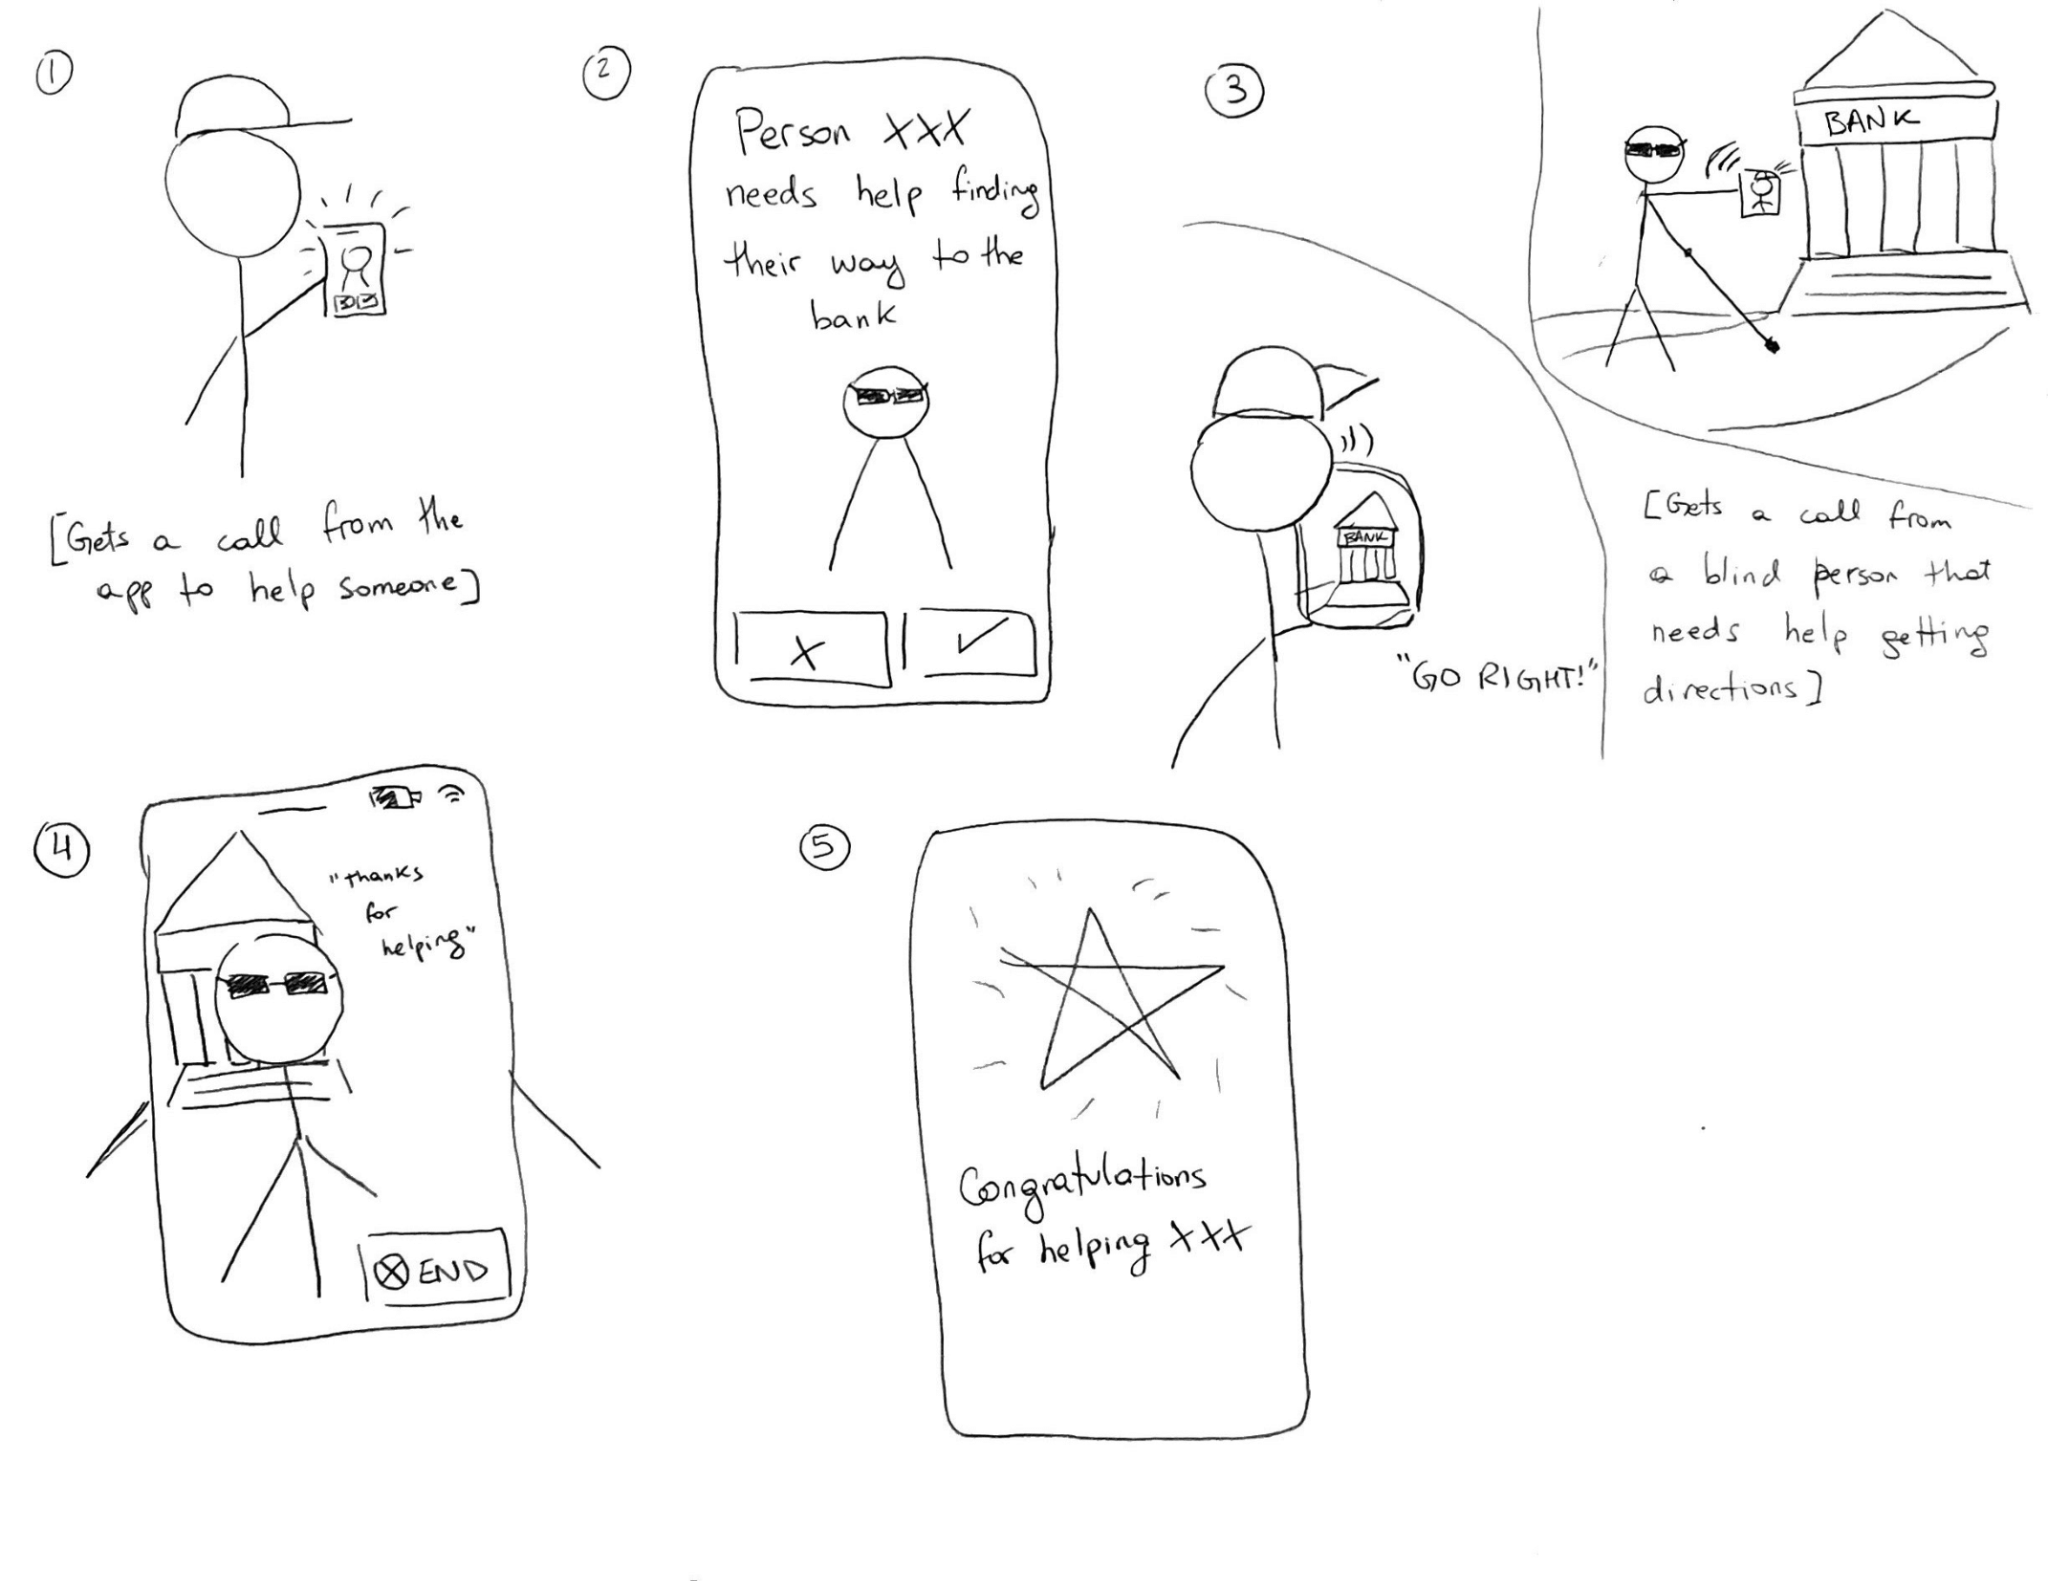 1
[Gets a call from the
app to help someone]
2
Person XXX
needs help finding
their way to the
bank
X ✓
3
BANK
BANK
"GO RIGHT!"
[Gets a call from
a blind person that
needs help getting
directions]
4
"thanks
for
helping"
END
5
Congratulations
for helping XXX